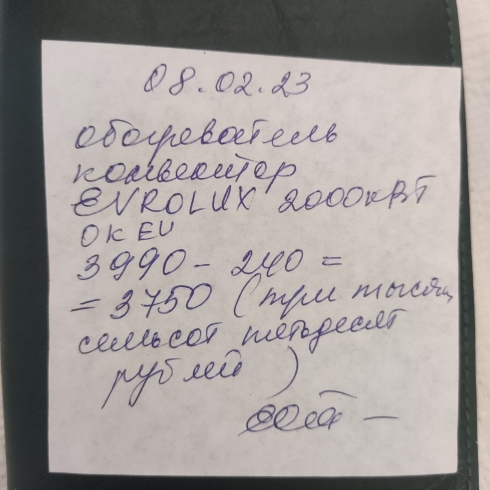 08.02.23
обогреватель
конвектор
EVROLUX 2000кВт
ОК EU
3990 - 240 =
= 3750 (три тысяч
семьсот пятьдесят
рублей)